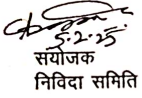 5.2.25
संयोजक
निविदा समिति